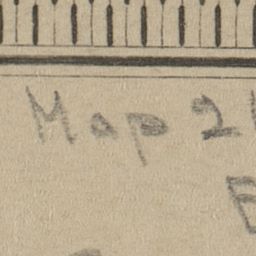 Map 2
E